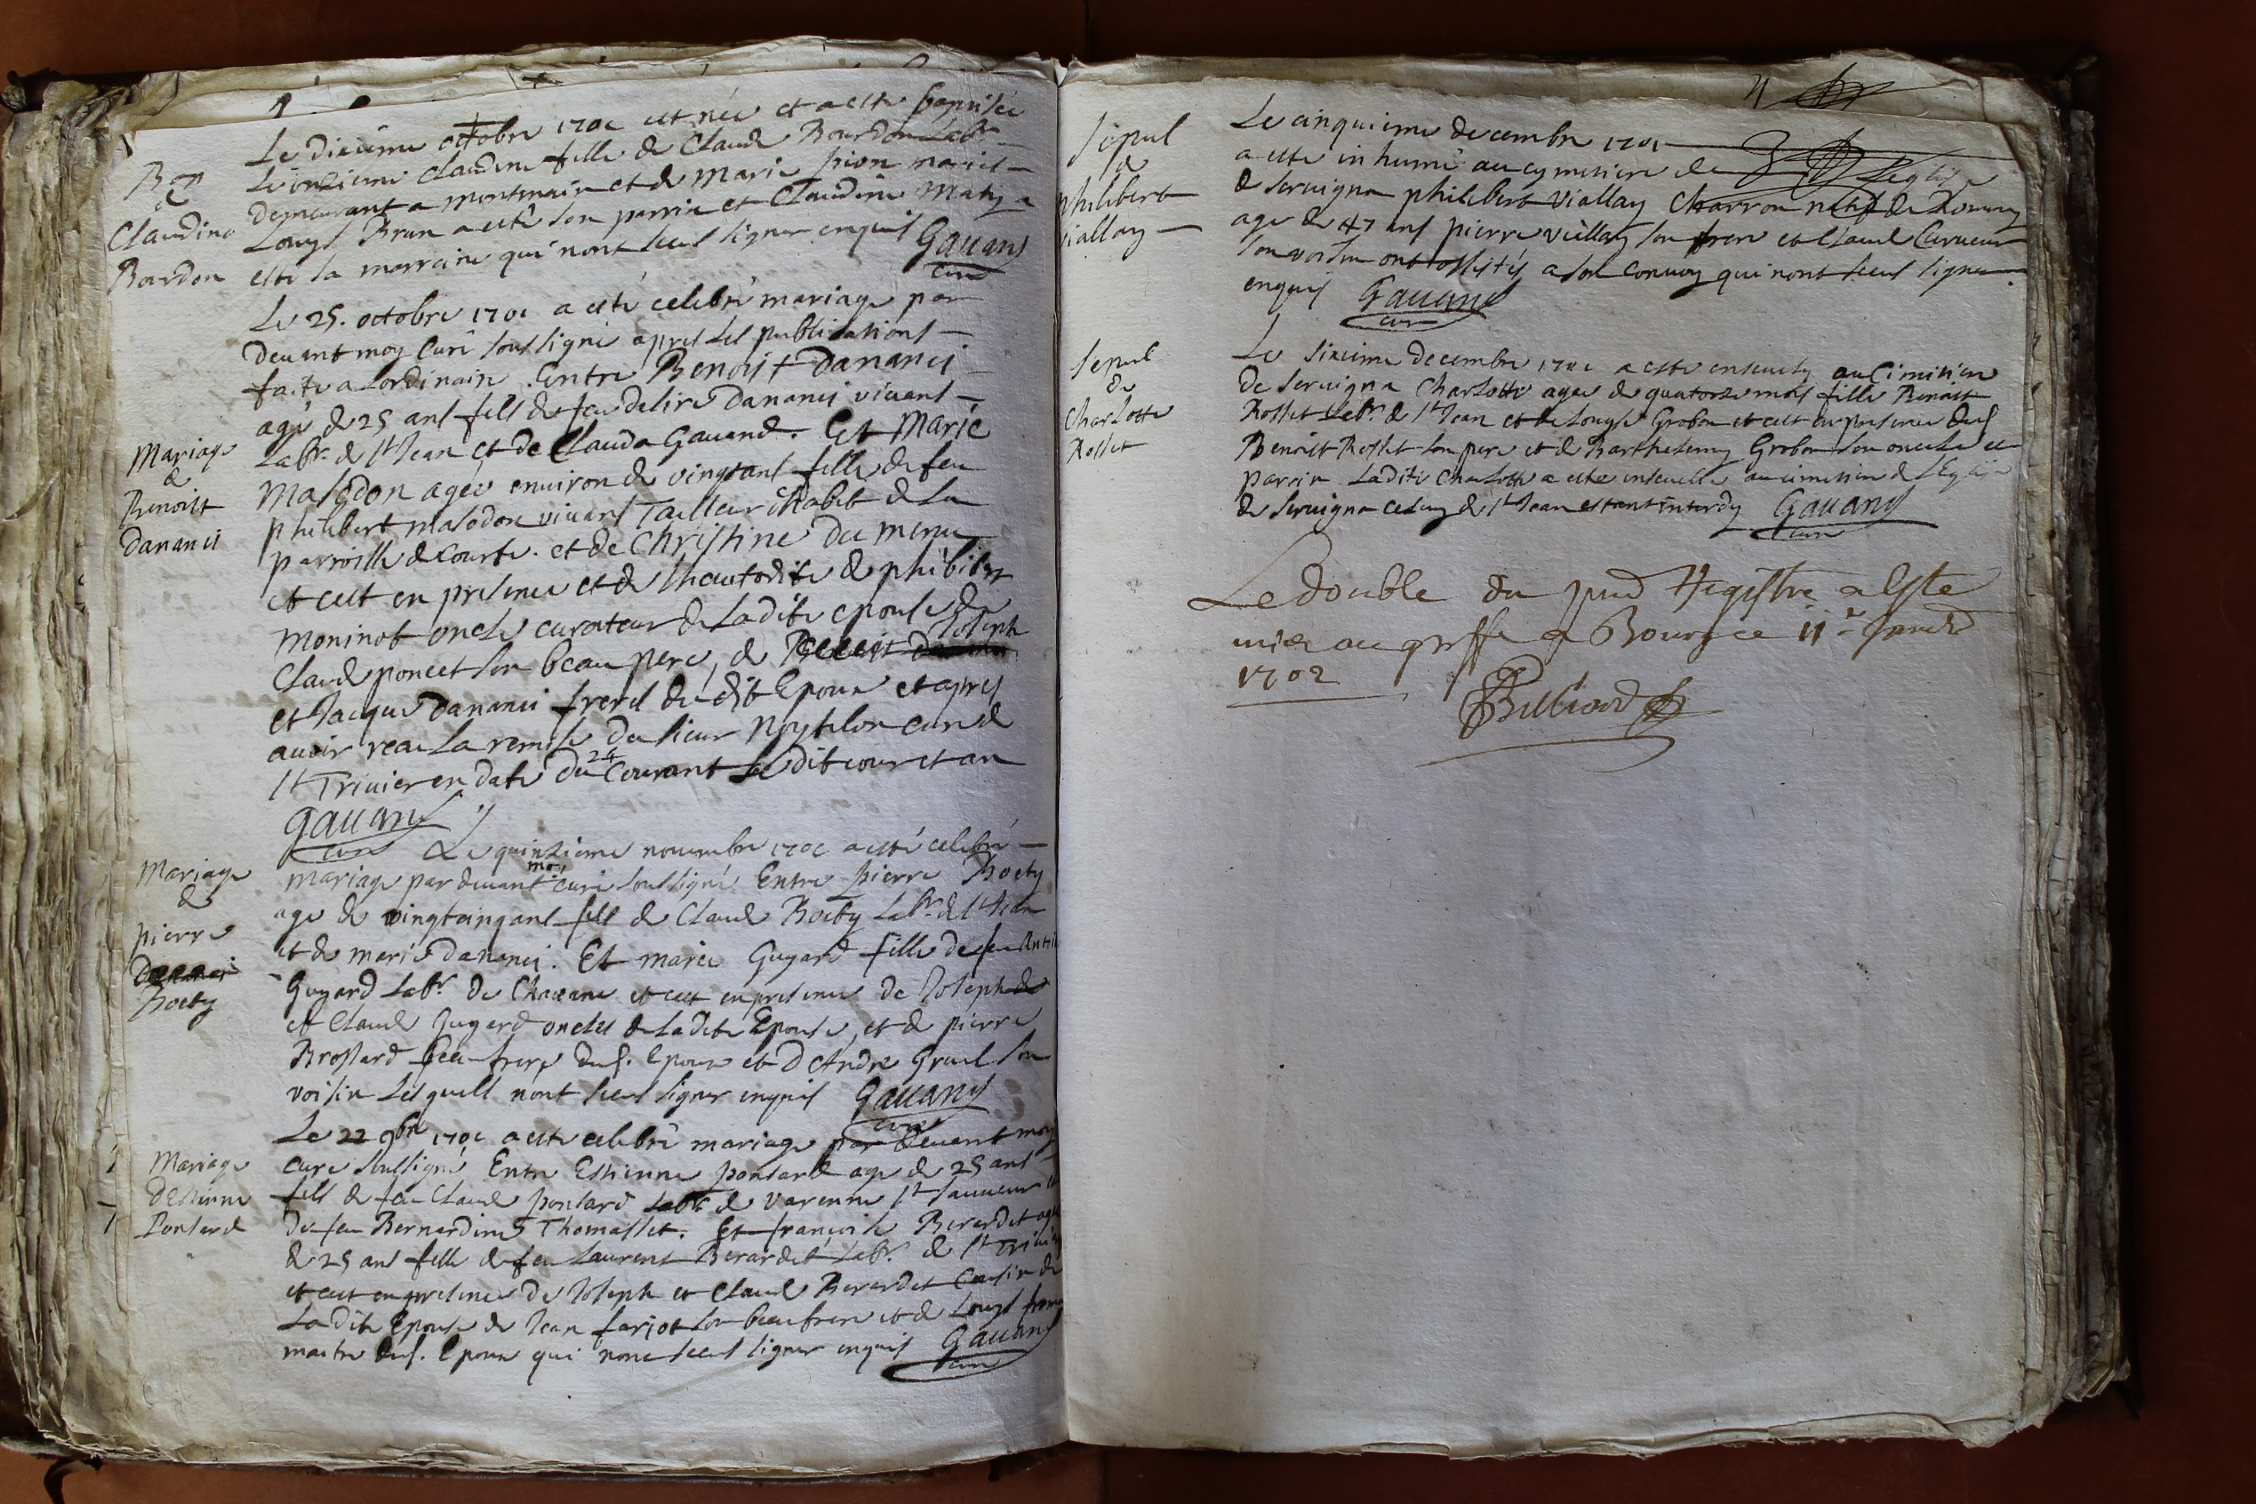 Bap
de
Claudine
Bourdon
Le dixieme octobre 1701 est née et a esté baptisée
Le onzieme Claudine fille de Claude Bourdon Labr
demeurant a montmain et de Marie pion mariés
Louys Brun a esté son parrin et Claudine Maty a
esté sa marraine qui nont sceus signer enquis Gauand
curé
Mariage
de
Benoist
dananci
Le 25. octobre 1701 a esté celebré mariage par
devant moy Curé soussigné apres les publications
faite a Lordinaire. Entre Benoist dananci
agé de 25 ans fils de feu delire dananci vivant
Labr. de st Jean et de Clauda Gauand. Et Marie
Masodon agée environ de vingt ans fille de feu
philibert masodon vivant Tailleur dhabit de la
parroisse de Courte. et de Christine du menu
et cest en presence et de lhautorité de phibibert
moninot oncle curateur de Ladite epouse de
Claude poncet son beau pere, de Joseph
et Jacque dananci freres du dit Epoux et apres
avoir receu La remise du sieur Noytelon curé de
st Trivier en date du 24 Courant Le dit jour et an
Gauand
curé
Mariage
de
pierre
Boety
Le quinzieme novembre 1701 a esté celebré
mariage par devant moi curé soussigné. Entre pierre Boety
age de vingtcinq ans fils de Claude Boety Labr. de st Jean
et de marie dananci. Et marie Guyard fille de feu
Guyard Labr. de Chavane et cest en presence de Joseph
et Claude Juyard oncles de Ladite Epouse, et de pierre
Brossard beau frere dud. Epoux et dAndre Gruel son
voisin Lesquels nont sceus signer enquis Gauand
curé
Mariage
dEstienne
Ponsard
Le 22 9bre 1701 a esté celebré mariage par devant moy
Curé soussigné Entre Estienne ponsard age de 25 ans
fils de feu Claude ponsard Labr de varenne st sauveur et
de feu Bernardine Thomasset. Et françoise Berardet agée
de 25 ans fille de feu Laurent Berardet Labr. de st Trivier
et cest en presence de Joseph et Claude Berardet Cousin de
Ladite Epouse de Jean farjot son beaufrere et de Louys
maitre dud. Epoux qui nont sceus signer enquis Gauand
curé
Sepul
de
philibert
viallay
Le cinquieme decembre 1701
a esté inhumé au cymetiere de Leglise
de servigna philibert viallay Charron natif de Romenay
age de 47 ans pierre viallay son frere et Claude
son voisin ont assistés a son convoy qui nont sceus signer
enquis Gauand
curé
Sepul
de
Charlotte
Rosset
Le sixieme decembre 1701 a esté ensevely au Cimitiere
de Servigna Charlotte agée de quatorze mois fille Benoist
Rosset Labr. de st Jean et de Louyse Grobon et cest en presence dud
Benoist Rosset son pere et de Barthelemy Grobon son oncle et
parrin Ladite Charlotte a esté ensevelie au cimitiere de LEglise
de Servigna celuy de st Jean estant interdy Gauand
curé
Le double du pnt Registre a Este
mis au greffe a Bourg ce 11e
1702
Billiond